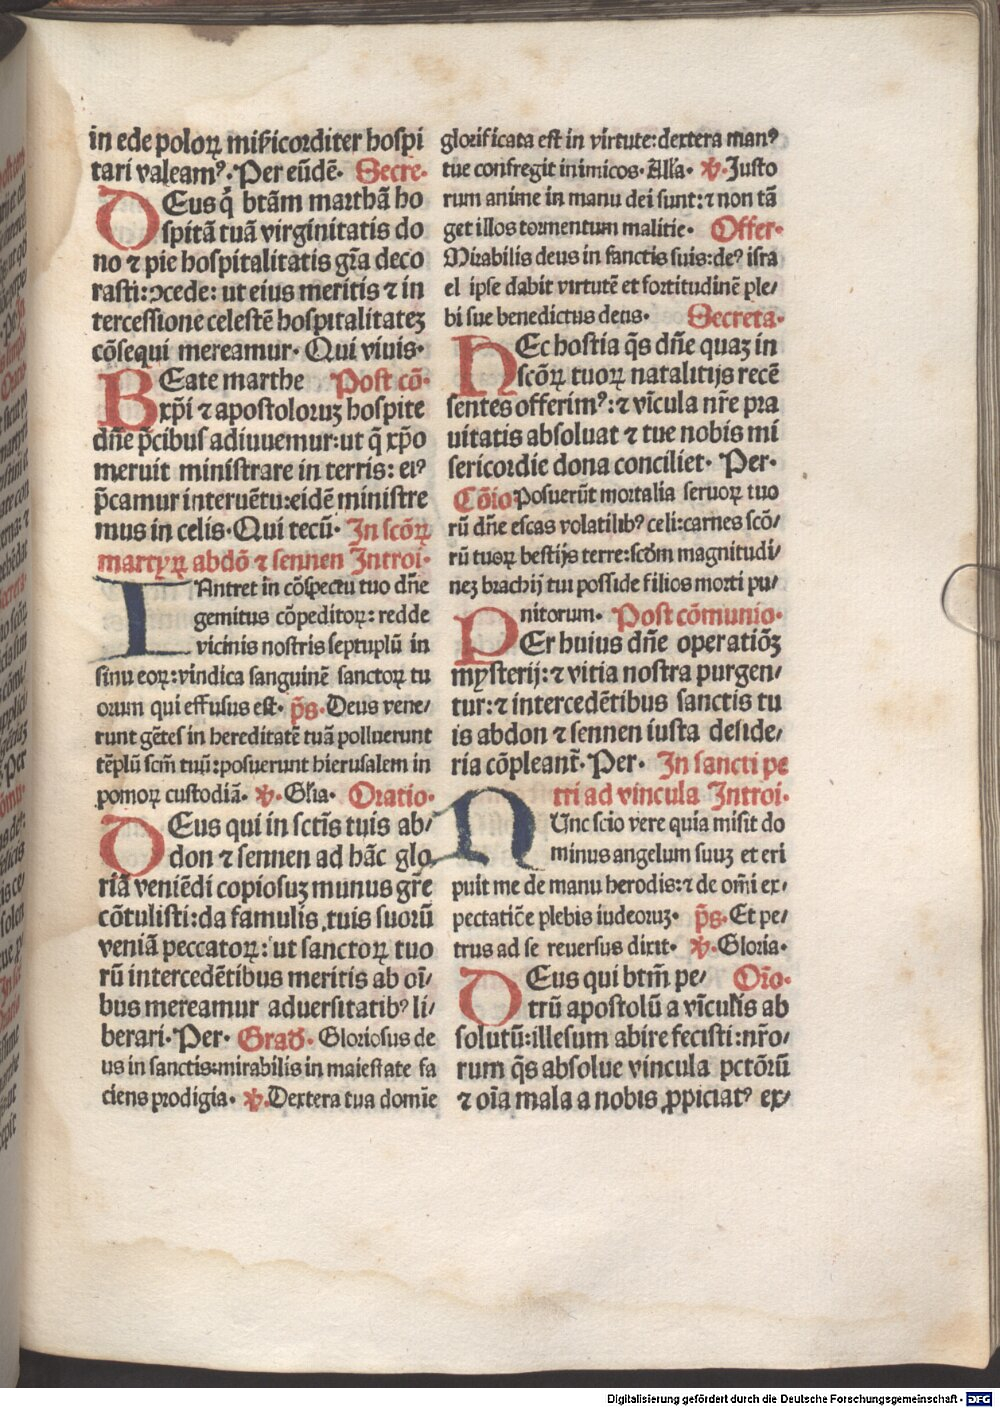 in ede poloꝝ mīs̄icorditer hospi
tari valeamꝰ. Per eūdē. Secre.
DEus q̄ btām marthā ho
spitā tuā virginitatis do
no ⁊ pie hospitalitatis gr̄a deco
rasti:ↄcede: ut eius meritis ⁊ in
tercessione celestē hospitalitateꝫ
cōsequi mereamur. Qui viuis.
BEate marthe Post cō.
xp̄i ⁊ apostoloruꝫ hospite
dn̄e p̄cibus adiuuemur:ut q̄ xp̄o
meruit ministrare in terris: eiꝰ
p̄camur interuētu:eidē ministre
mus in celis. Qui tecū. In scōꝝ
martyꝝ abdō ⁊ sennen Introi.
INtret in cōspectu tuo dn̄e
gemitus cōpeditoꝝ: redde
vicinis nostris septuplū in
sinu eoꝝ:vindica sanguinē sanctoꝝ tu
orum qui effusus est. p̄s. Deus vene/
runt gētes in hereditatē tuā polluerunt
tēplū scm̄ tuū:posuerunt hierusalem in
pomoꝝ custodiā. ℣. Gl̄ia. Oratio.
DEus qui in sctīs tuis ab/
don ⁊ sennen ad hāc glo
riā veniēdi copiosuꝫ munus gr̄e
cōtulisti:da famulis tuis suorū
veniā peccatoꝝ: ut sanctoꝝ tuo
rū intercedētibus meritis ab oī
bus mereamur aduersitatibꝰ li/
berari. Per. Grad. Gloriosus de
us in sanctis:mirabilis in maiestate fa
ciens prodigia. ℣. Dextera tua domīe
glorificata est in virtute:dextera manꝰ
tue confregit inimicos. All̄a. ℣. Justo
rum anime in manu dei sunt:⁊ non tā
get illos tormentum malitie. Offer.
Mirabilis deus in sanctis suis:deꝰ isra
el ipse dabit virtutē et fortitudinē ple/
bi sue benedictus deus. Secreta.
HEc hostia q̄s dn̄e quaꝫ in
scōꝝ tuoꝝ natalitijs recē
sentes offerimꝰ:⁊ vīcula nr̄e pra
uitatis absoluat ⁊ tue nobis mi
sericordie dona conciliet. Per.
Cōio Posuerūt mortalia seruoꝝ tuo
rū dn̄e escas volatilibꝰ celi:carnes scō/
rū tuoꝝ bestijs terre:scdm magnitudi/
neꝫ brachij tui posside filios morti pu/
nitorum. Post cōmunio.
PEr huius dn̄e operatiōꝫ
mysterij:⁊ vitia nostra purgen/
tur:⁊ intercedētibus sanctis tu
is abdon ⁊ sennen iusta deside/
ria cōpleant̄. Per. In sancti pe
tri ad vincula Introi.
NUnc scio vere quia misit do
minus angelum suuꝫ et eri
puit me de manu herodis:⁊ de om̄i ex/
pectatiōe plebis iudeoruꝫ. p̄s. Et pe/
trus ad se reuersus dixit. ℣. Gloria.
DEus qui btm̄ pe/ Orō.
trū apostolū a vīcul̄is ab
solutū:illesum abire fecisti:nr̄o/
rum q̄s absolue vincula pctōrū
⁊ oīa mala a nobis ꝓpiciatꝰ ex/
Digitalisierung gefördert durch die Deutsche Forschungsgemeinschaft - DFG